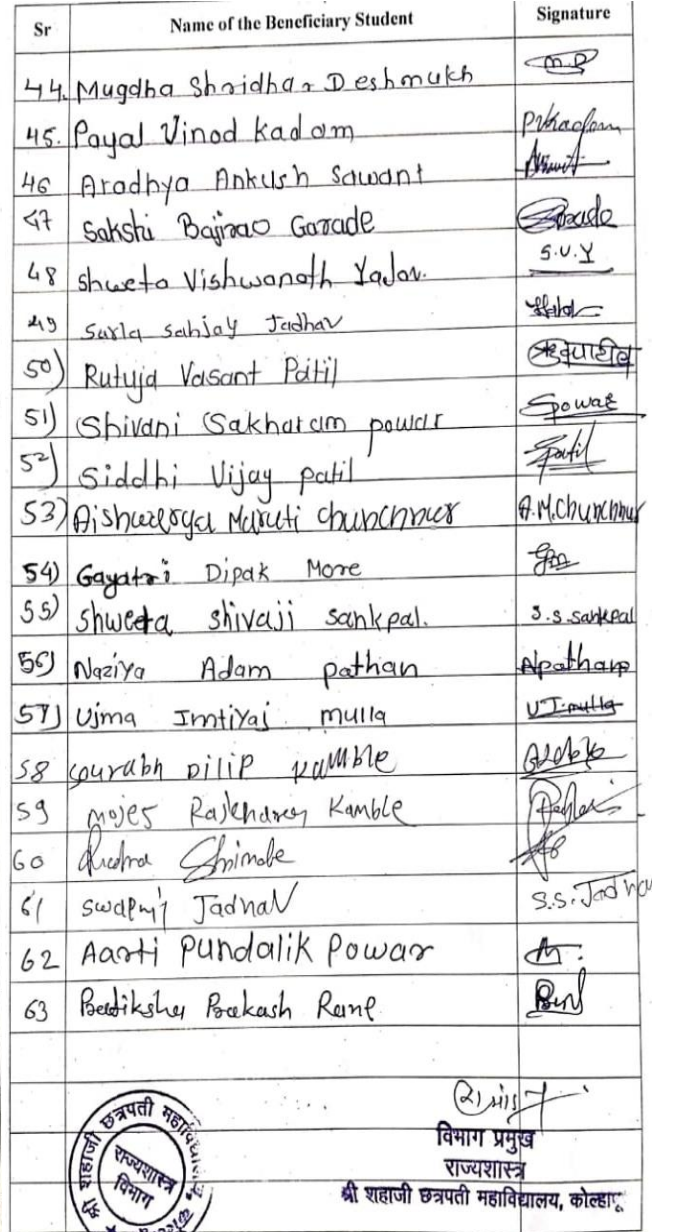 Sr Name of the Beneficiary Student Signature
44. Mugdha Shridhar Deshmukh M.D
45. Payal Vinod Kadam PVKadam
46 Aradhya Ankush Sawant
47 Sakshi Bajirao Garade
48 Shweta Vishwanath Yadav. S.V.Y
49 Sarla Sanjay Jadhav
50) Rutuja Vasant Patil
51) Shivani Sakharam powar Spowar
52) Siddhi Vijay patil Spatil
53) Aishwarya Maruti Chunchnur A.M.Chunchnur
54) Gayatri Dipak More Gm
55) Shweta shivaji sankpal. S.S.Sankpal
56) Naziya Adam pathan Apathan
57) Ujma Imtiyaj mulla U I.mulla
58 Sourabh Dilip Kamble
59 Mojes Rajendra Kamble
60
61 Swapnil Jadhav S.S.Jadhav
62 Aarti Pundalik Powar
63 Pratiksha Prakash Rane
विभाग प्रमुख
राज्यशास्त्र
श्री शहाजी छत्रपती महाविद्यालय, कोल्हापू
श्री शहाजी छत्रपती महाविद्यालय,
राज्यशास्त्र
विभाग